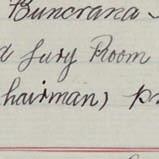 Buncrana
Jury Room
hairman)